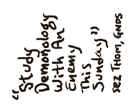 "Study
Demonology
With An
Enemy
This
Sunday"
sez Thom, Gnos